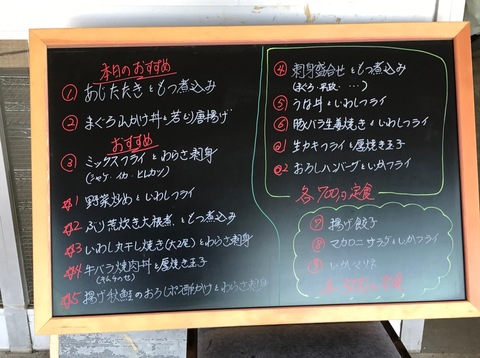 本日のおすすめ
① あじたたきともつ煮込み
② まぐろ山かけ丼と若どり唐揚げ
おすすめ
③ ミックスフライとわらさ刺身
(シャケ・イカ・ヒレカツ)
#1 野菜炒めといわしフライ
#2 ぶり荒炊き大根煮ともつ煮込み
#3 いわし丸干し焼き(大2尾)とわらさ刺身
#4 牛バラ焼肉丼と厚焼き玉子
(キムチのせ)
#5 揚げ秋鮭のおろしポン酢かけとわらさ刺身
④ 刺身盛合せともつ煮込み
(まぐろ・平政・…)
⑤ うな丼といわしフライ
⑥ 豚バラ生姜焼きといわしフライ
@1 生カキフライと厚焼き玉子
@2 おろしハンバーグといかフライ
各700円定食
⑦ 揚げ餃子
⑧ マカロニサラダといかフライ